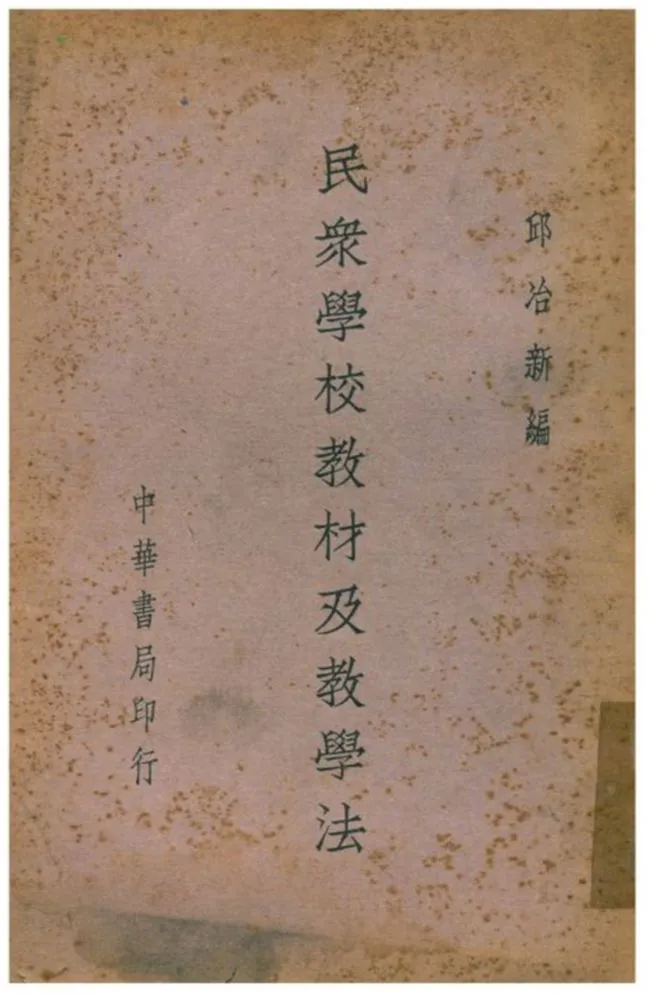 邱冶新編
民衆學校教材及教學法
中華書局印行